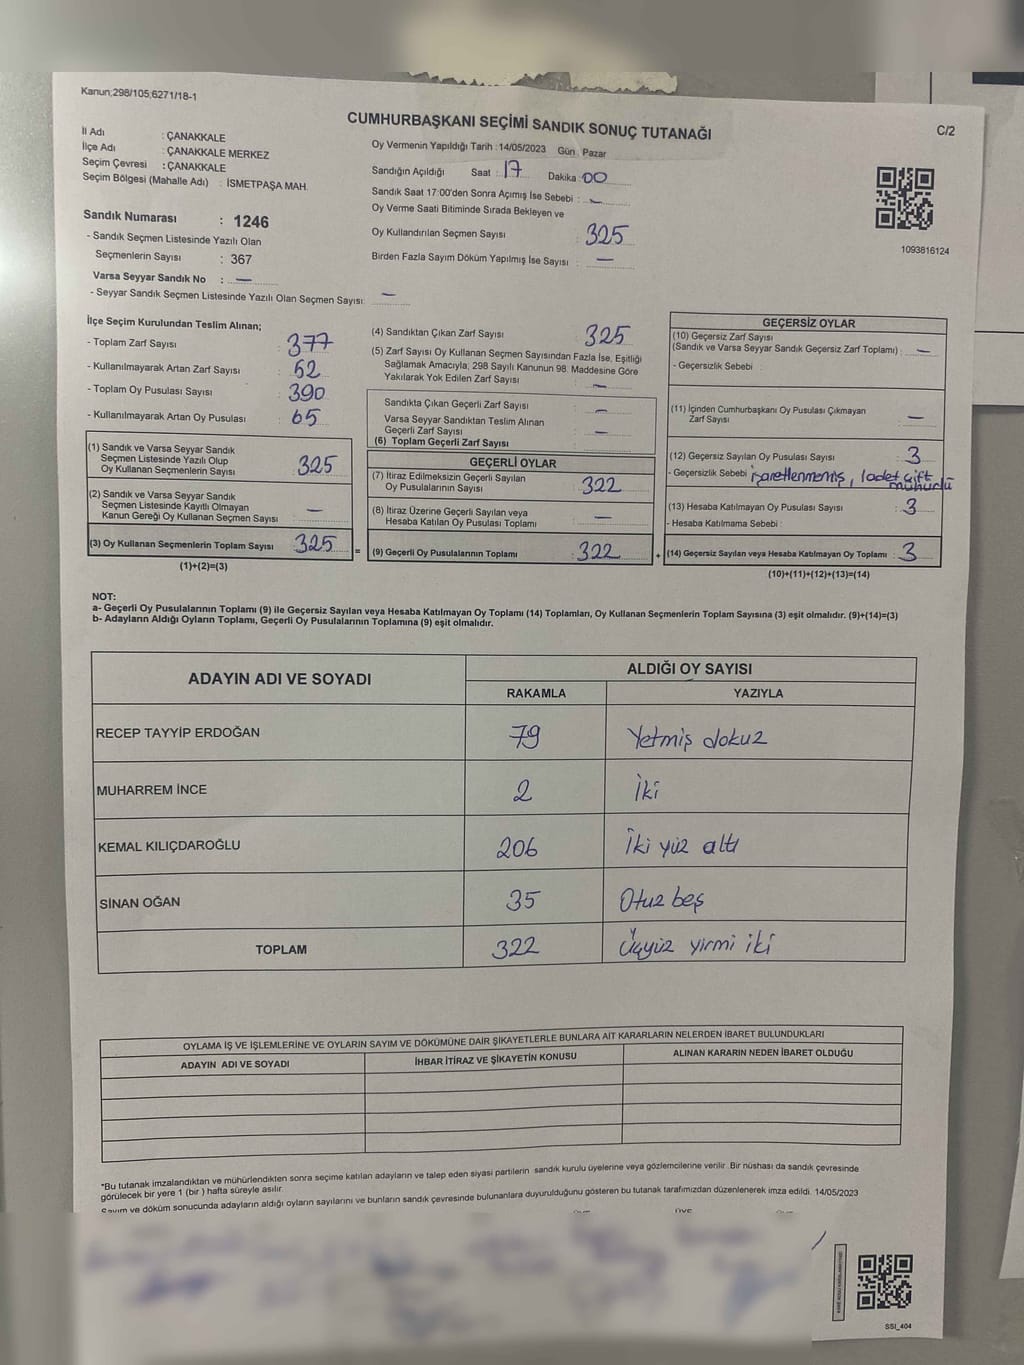 Kanun;298/105;6271/18-1
CUMHURBAŞKANI SEÇİMİ SANDIK SONUÇ TUTANAĞI
C/2
İl Adı : ÇANAKKALE
İlçe Adı : ÇANAKKALE MERKEZ
Seçim Çevresi : ÇANAKKALE
Seçim Bölgesi (Mahalle Adı) : İSMETPAŞA MAH.
Sandık Numarası : 1246
- Sandık Seçmen Listesinde Yazılı Olan
Seçmenlerin Sayısı : 367
Varsa Seyyar Sandık No : —
- Seyyar Sandık Seçmen Listesinde Yazılı Olan Seçmen Sayısı: —
Oy Vermenin Yapıldığı Tarih : 14/05/2023 Gün : Pazar
Sandığın Açıldığı Saat : 17 Dakika : 00
Sandık Saat 17:00'den Sonra Açımış İse Sebebi : —
Oy Verme Saati Bitiminde Sırada Bekleyen ve
Oy Kullandırılan Seçmen Sayısı : 325
Birden Fazla Sayım Döküm Yapılmış İse Sayısı : —
1093816124
İlçe Seçim Kurulundan Teslim Alınan;
- Toplam Zarf Sayısı : 377
- Kullanılmayarak Artan Zarf Sayısı : 52
- Toplam Oy Pusulası Sayısı : 390
- Kullanılmayarak Artan Oy Pusulası : 65
(1) Sandık ve Varsa Seyyar Sandık
Seçmen Listesinde Yazılı Olup
Oy Kullanan Seçmenlerin Sayısı : 325
(2) Sandık ve Varsa Seyyar Sandık
Seçmen Listesinde Kayıtlı Olmayan
Kanun Gereği Oy Kullanan Seçmen Sayısı : —
(3) Oy Kullanan Seçmenlerin Toplam Sayısı : 325 =
(1)+(2)=(3)
(4) Sandıktan Çıkan Zarf Sayısı : 325
(5) Zarf Sayısı Oy Kullanan Seçmen Sayısından Fazla İse, Eşitliği
Sağlamak Amacıyla, 298 Sayılı Kanunun 98. Maddesine Göre
Yakılarak Yok Edilen Zarf Sayısı : —
Sandıkta Çıkan Geçerli Zarf Sayısı : —
Varsa Seyyar Sandıktan Teslim Alınan
Geçerli Zarf Sayısı : —
(6) Toplam Geçerli Zarf Sayısı
GEÇERLİ OYLAR
(7) İtiraz Edilmeksizin Geçerli Sayılan
Oy Pusulalarının Sayısı : 322
(8) İtiraz Üzerine Geçerli Sayılan veya
Hesaba Katılan Oy Pusulası Toplamı : —
(9) Geçerli Oy Pusulalarının Toplamı : 322 +
GEÇERSİZ OYLAR
(10) Geçersiz Zarf Sayısı
(Sandık ve Varsa Seyyar Sandık Geçersiz Zarf Toplamı) : —
- Geçersizlik Sebebi :
(11) İçinden Cumhurbaşkanı Oy Pusulası Çıkmayan
Zarf Sayısı : —
(12) Geçersiz Sayılan Oy Pusulası Sayısı : 3
- Geçersizlik Sebebi işaretlenmemiş, 1 adet çift
mühürlü
(13) Hesaba Katılmayan Oy Pusulası Sayısı : 3
- Hesaba Katılmama Sebebi :
(14) Geçersiz Sayılan veya Hesaba Katılmayan Oy Toplamı : 3
(10)+(11)+(12)+(13)=(14)
NOT:
a- Geçerli Oy Pusulalarının Toplamı (9) ile Geçersiz Sayılan veya Hesaba Katılmayan Oy Toplamı (14) Toplamları, Oy Kullanan Seçmenlerin Toplam Sayısına (3) eşit olmalıdır. (9)+(14)=(3)
b- Adayların Aldığı Oyların Toplamı, Geçerli Oy Pusulalarının Toplamına (9) eşit olmalıdır.
ADAYIN ADI VE SOYADI
ALDIĞI OY SAYISI
RAKAMLA YAZIYLA
RECEP TAYYİP ERDOĞAN 79 Yetmiş dokuz
MUHARREM İNCE 2 İki
KEMAL KILIÇDAROĞLU 206 İki yüz altı
SİNAN OĞAN 35 Otuz beş
TOPLAM 322 Üçyüz yirmi iki
OYLAMA İŞ VE İŞLEMLERİNE VE OYLARIN SAYIM VE DÖKÜMÜNE DAİR ŞİKAYETLERLE BUNLARA AİT KARARLARIN NELERDEN İBARET BULUNDUKLARI
ADAYIN ADI VE SOYADI İHBAR İTİRAZ VE ŞİKAYETİN KONUSU ALINAN KARARIN NEDEN İBARET OLDUĞU
*Bu tutanak imzalandıktan ve mühürlendikten sonra seçime katılan adayların ve talep eden siyasi partilerin sandık kurulu üyelerine veya gözlemcilerine verilir. Bir nüshası da sandık çevresinde
görülecek bir yere 1 (bir ) hafta süreyle asılır.
Sayım ve döküm sonucunda adayların aldığı oyların sayılarını ve bunların sandık çevresinde bulunanlara duyurulduğunu gösteren bu tutanak tarafımızdan düzenlenerek imza edildi. 14/05/2023
SSI_404